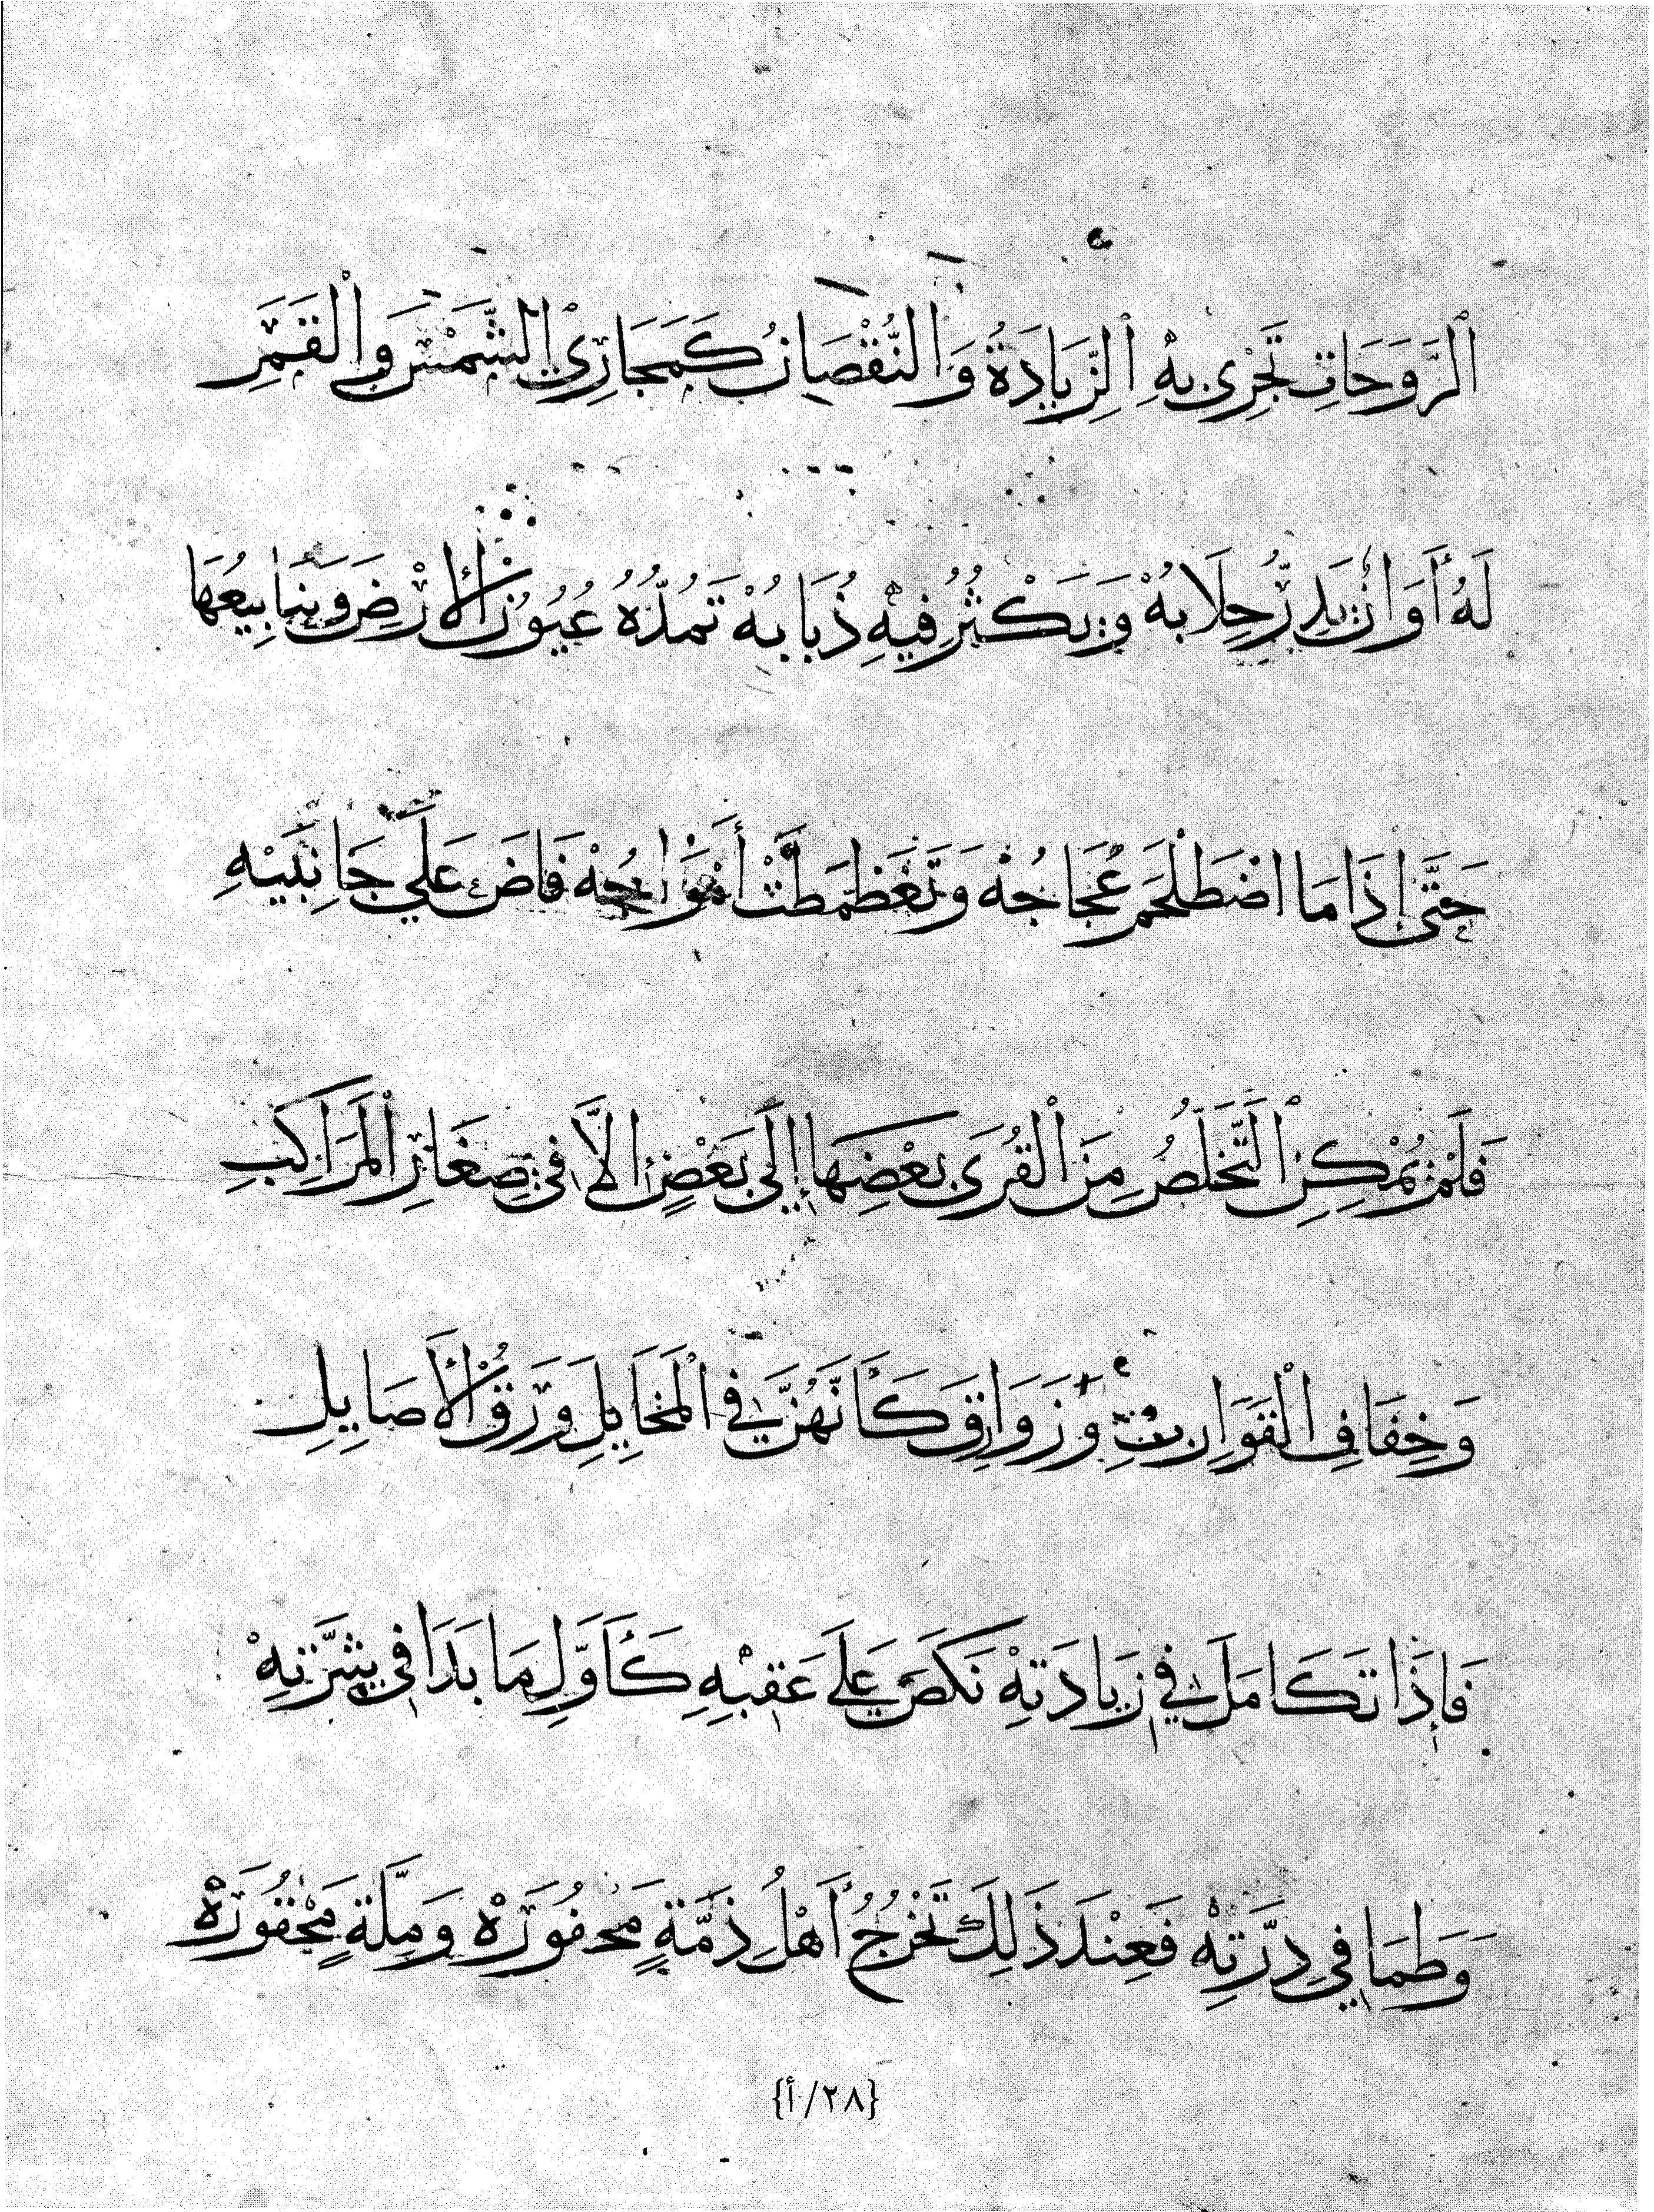 اَلرَّوَحَاتِ تَجْرِى بِهِ اَلزِّيَادَةُ وَالنُّقْصَانُ كَمَجَارِيْ الشَّمْسِ وَالْقَمَرِ
لَهُ أَوَانٌ يَدِرُّ حِلَابُهُ وَيَكْثُرُ فِيْهِ ذُبَابُهْ تَمُدُّهُ عُيُوُنُ الْأَرْضِ وَيَنَابِيعُهَا
حَتَّى إِذَا مَا اضْطَلْخَمَ عُجَاجُهْ وَتَغَظْمَطَتْ أَمْوَاجُهْ فَاضَ عَلَي جَانِبَيْهِ
فَلَمْ يُمْكِنِ التَّخَلُّصُ مِنَ الْقُرَى بَعْضِهَا إِلَى بَعْضٍ إلاَّ فِى صِغَارِ اَلْمَرَاكِبِ
وَخِفَافِ الْقَوَارِبِ وَزَوَارِقَ كَأَنَّهُنَّ فِي الْمَخَايِلِ وَرَقُ الْأَصَايِيلِ
فَإِذَا تَكَامَلَ فِي زِيَادَتِهْ نَكَصَ عَلَي عَقِبِهِ كَأَوَّلِ مَا بَدَا فِي شِرَّتِهْ
وَطَمَا فِي دِرَّتِهْ فَعِنْدَ ذَلِكَ تَخْرُجُ أَهْلُ ذِمَّةٍ مَحْفُوْرَهْ وَمِلَّةٍ مَحْقُوْرَهْ
{٢٨/أ}